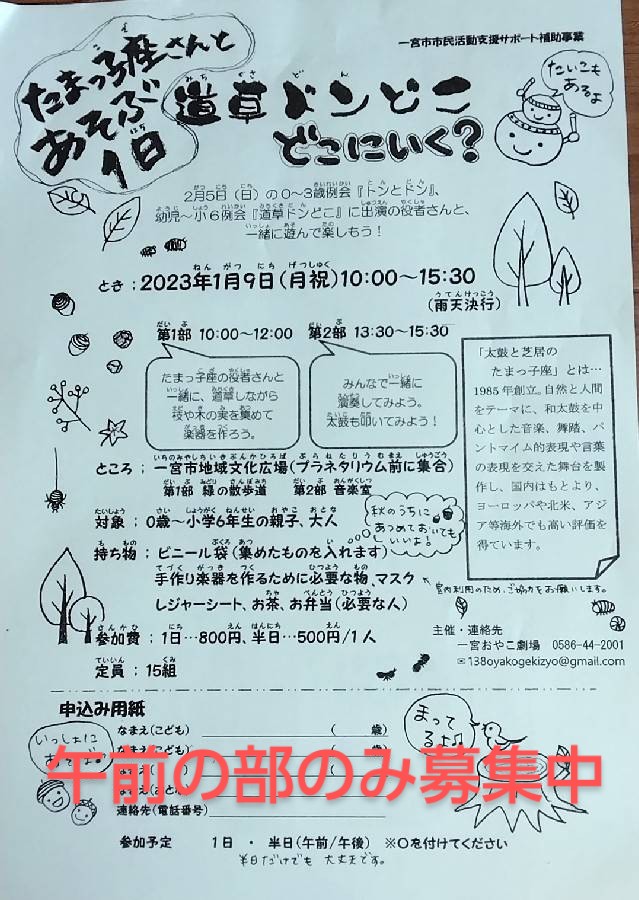 一宮市市民活動支援サポート補助事業
たまっ子座さんと
あそぶ
1日
道草ドンどこ
どこにいく?
たいこも
あるよ
2月5日(日)の0~3歳例会『トンとドン』、
幼児~小6例会『道草ドンどこ』に出演の役者さんと、
一緒に遊んで楽しもう!
とき:2023年1月9日(月祝)10:00~15:30
(雨天決行)
第1部 10:00~12:00 第2部 13:30~15:30
たまっ子座の役者さんと
一緒に、道草しながら
枝や木の実を集めて
楽器を作ろう。
みんなで一緒に
演奏してみよう。
太鼓も叩いてみよう!
「太鼓と芝居の
たまっ子座」とは…
1985年創立。自然と人間
をテーマに、和太鼓を中
心とした音楽、舞踏、パ
ントマイム的表現や言葉
の表現を交えた舞台を製
作し、国内はもとより、
ヨーロッパや北米、アジ
ア等海外でも高い評価を
得ています。
ところ:一宮市地域文化広場(プラネタリウム前に集合)
第1部 緑の散歩道 第2部 音楽室
対象:0歳~小学6年生の親子、大人
秋のうちに
あつめておいても
いいよ!
持ち物:ビニール袋(集めたものを入れます)
手作り楽器を作るために必要な物、マスク
レジャーシート、お茶、お弁当(必要な人)
室内利用のため、ご協力をお願いします。
参加費:1日…800円、半日…500円/1人
定員:15組
主催・連絡先
一宮おやこ劇場 0586-44-2001
✉138oyakogekizyo@gmail.com
申込み用紙
いっしょに
あそぼ
まって
るよ♫
なまえ(こども) ( 歳)
なまえ(こども) ( 歳)
午前の部のみ募集中
連絡先(電話番号)
参加予定 1日 ・ 半日(午前/午後) ※○を付けてください
半日だけでも 大丈夫です。